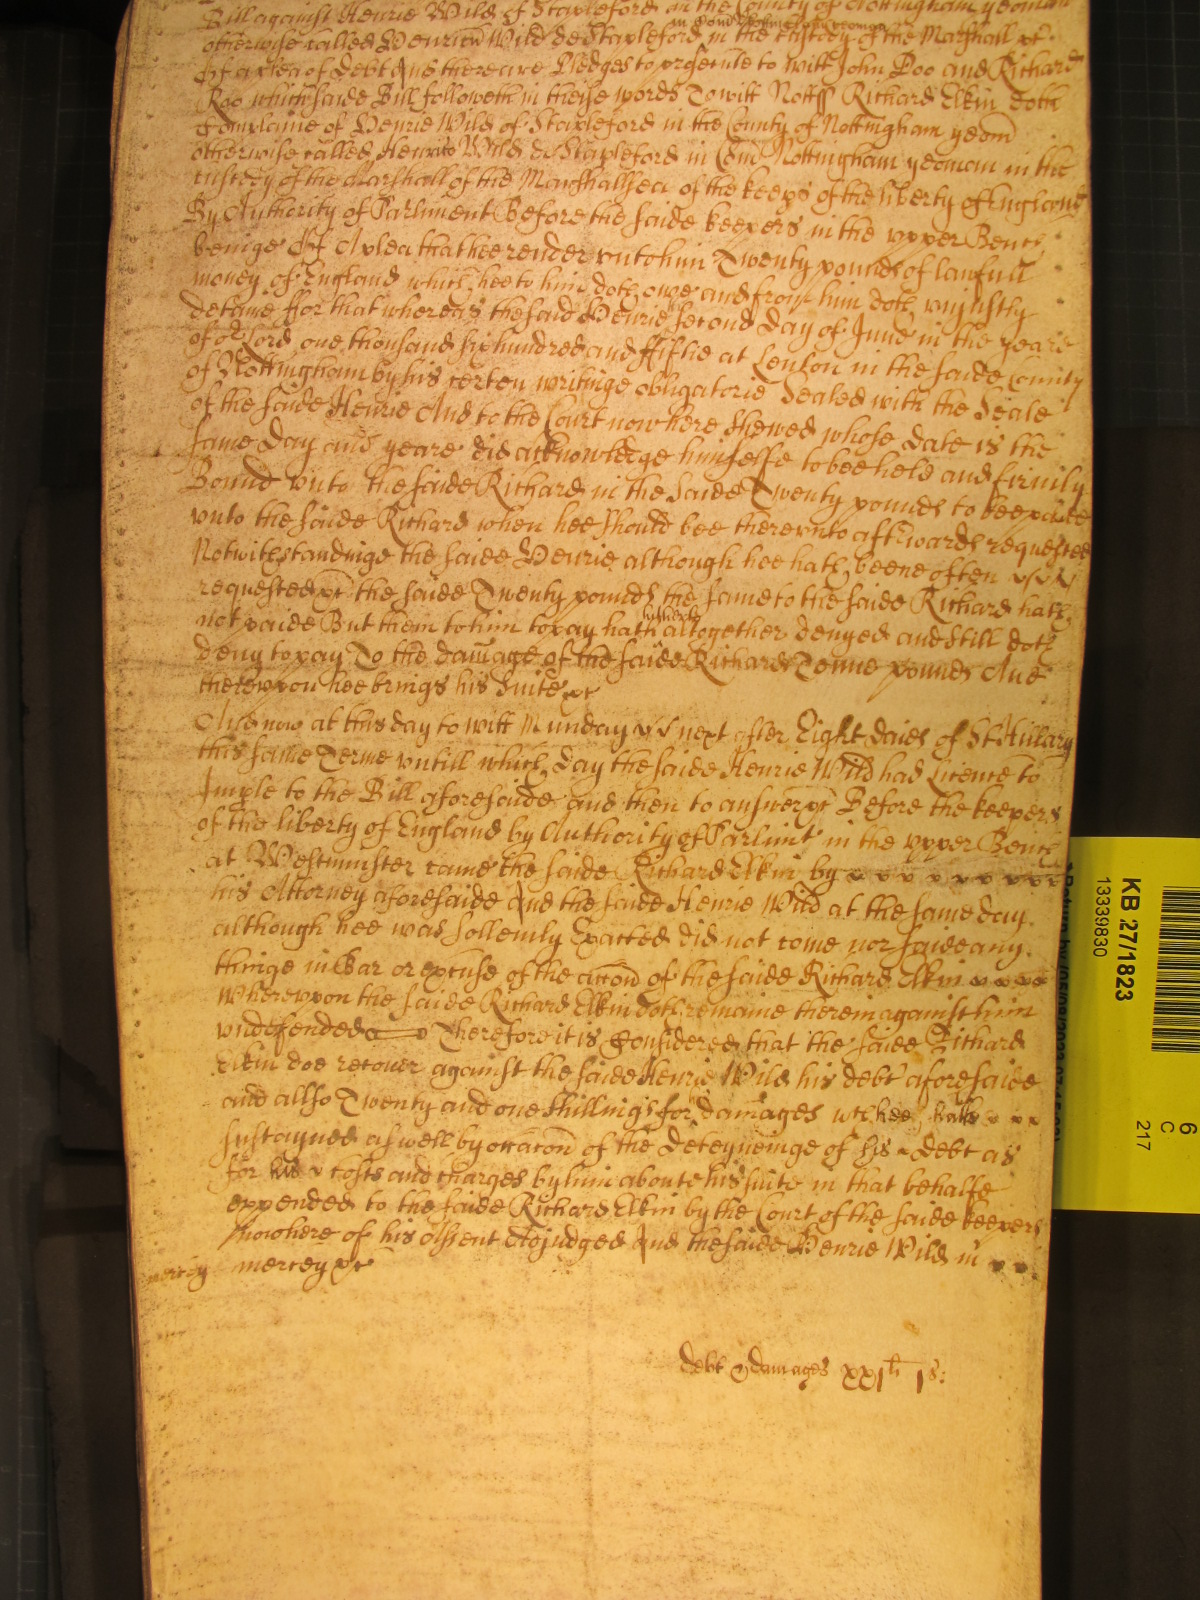 Bill against Henrie Wild of Stapleford in the County of Nottingham yeoman
in Com Nottingham yeoman
otherwise called Henricu Wild de Stapleford in the custody of the Marshall &c.
Of a plea of debt And there are Pledges to prosecute to witt John Doo and Richard
Roo which saide Bill followeth in theise words To witt Notts Richard Elkin doth
Complaine of Henrie Wild of Stapleford in the County of Nottingham yeom
otherwise called Henric Wild de Stapleford in Com Nottingham yeoman in the
custody of the Marshall of the Marshallsea of the keeps of the liberty of England
By Authority of Parliment Before the saide keepers in the upper Bench
beinge Of A plea that hee render unto him Twenty pounds of lawfull
money of England which hee to him doth owe and from him doth unjustly
detaine ffor that whereas the said Henrie second day of June in the yeare
of or Lord one thousand six hundred and ffiftie at Lenton in the saide County
of Nottingham by his certen writinge obligatorie Sealed with the Seale
of the saide Henrie And to the Court now here shewed whose date is the
same day and yeare did acknowledge himselfe to bee held and firmly
Bound unto the saide Richard in the saide Twenty pounds to bee paide
unto the saide Richard when hee should bee thereunto afterwards requested
Notwithstandinge the saide Henrie although hee hath beene often
requested &c the saide Twenty pounds the same to the saide Richard hath
hitherto
not paide But them to him to pay hath altogether denyed and still doth
deny to pay To the damage of the saide Richard Tenne pounds And
thereupon hee brings his Suite &c
And now at this day to witt Munday next after Eight daies of St Hillary
this same Terme untill which day the saide Henrie Wild had Licence to
Imple to the Bill aforesaide and then to answer &c Before the keepers
of the liberty of England by Authority of Parlimt in the upper Bench
at Westminster came the saide Richard Elkin by
his Attorney aforesaide And the saide Henrie Wild at the same day
although hee was sollemly Exacted did not come nor saide any
thinge in Bar or excuse of the accon of the saide Richard Elkin
Whereupon the saide Richard Elkin doth remaine therein against him
undefended Therefore it is Considered that the saide Richard
Elkin doe recover against the saide Henrie Wild his debt aforesaide
and allso Twenty and one shillings for damages wch hee hath
sustayned as well by occacon of the deteyneinge of his debt as
for his costs and charges by him aboute his suite in that behalfe
expended to the saide Richard Elkin by the Court of the saide keepers
now here of his Assent Adjudged And the saide Henrie Wild in
mercy mercy &c
debt & damages xxjli js:
KB 27/1823
13339830
6
C
217